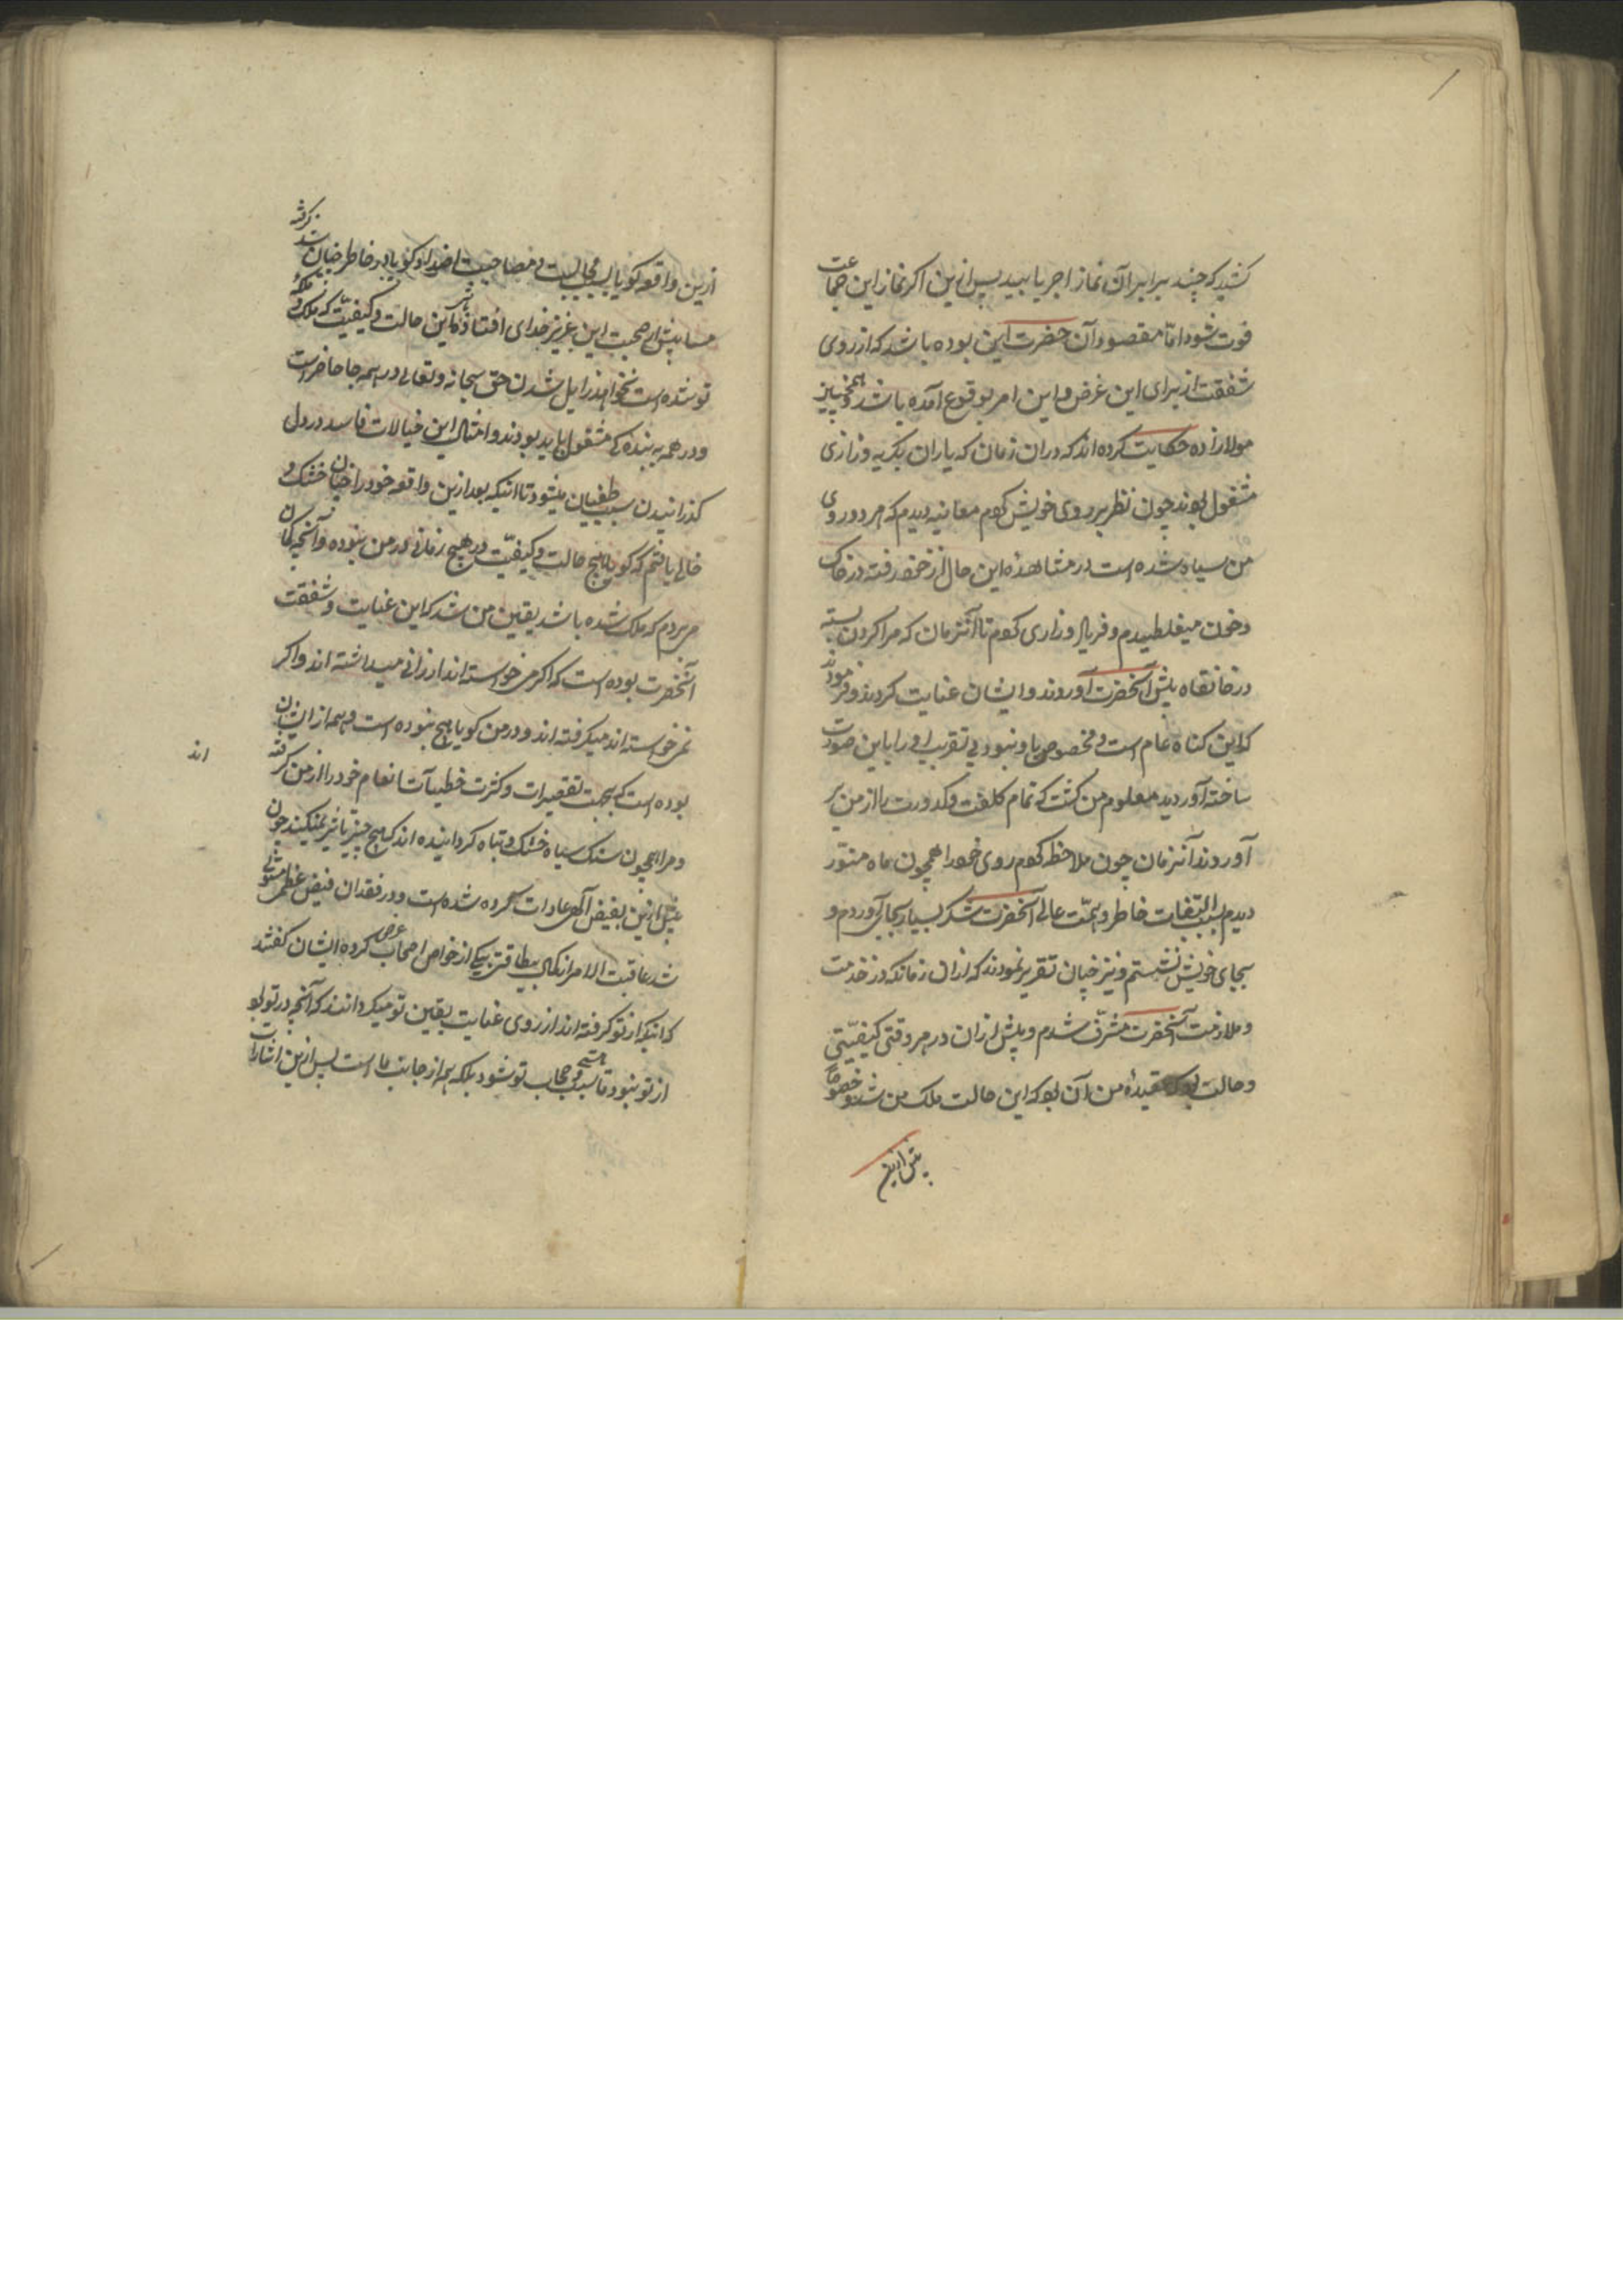 کشید که چند برابر آن نماز اجر یابید پس ازین اکر نماز این جماعت
فوت شود اما مقصود آن حضرت این بوده باشد که از روی
شفقت از برای این غرض و این امر بوقوع آمده باشد و همچنین نیز
مولازاده حکایت کرده اند که دران زمان که یاران بکریه و زاری
مشغول بودند چون نظر بر روی خویش کردم معاینه دیدم که هر دو روی
من سیاه شده است در مشاهده این حال از خود رفته در خاک
و خون میغلطیدم و فریاد و زاری کردم تا آنزمان که مرا کردن بسته
در خانقاه پیش آنحضرت آوردند و ایشان عنایت کردند و فرمودند
که این کناه عام است و مخصوص باو نبود بی تقریب او را باین صورت
ساخته آوردید معلوم من کشت که تمام کلفت و کدورت را از من بر
آوردند آنزمان چون ملاحظه کردم روی خود را همچون ماه منور
دیدم بسبب التفات خاطر و همت عالی آنحضرت شکر بسیار بجای آوردم و
بجای خویش نشستم و نیز چنان تقریر نمودند که ازان زمانکه در خدمت
و ملازمت آنحضرت مشرف شدم و پیش ازان در هر وقتی کیفیتی
و حالت بود عقیده من آن بود که این حالت ملک من شد و خصوصا
پیش ازین
ازین واقعه کویا بسبب مجالست و مصاحبت اضداد کویا در خاطر چنان شد کرفته
پیش از صحبت این عزیز خدای افتاد که این حالت و کیفیت که ملک و ملکه
تو شده است نخواهد زایل شدن حق سبحانه و تعالی در همه جا حاضر است
و در همه به بنده کی مشغول باید بودند و امثال این خیالات فاسد در دل
کذرانیدن سبب طغیان میشود تا آنیکه بعد ازین واقعه خود را چنان خشک و
خالی یافتم که کویا هیچ حالت و کیفیت در هیچ زمانی در من نبوده و آنچه کمان
می بردم که ملک شده باشد یقین من شد که این عنایت و شفقت
آنحضرت بوده است که اکر می خواسته اند ارزانی میداشته اند و اکر
نمی خواسته اند میکرفته اند و در من کویا هیچ نبوده است و همه از ایشان
بوده است که بجهت تقصیرات و کثرت خطیآت انعام خود را از من کرفته
اند
و مرا همچون سنک سیاه خشک و تباه کردانیده اند که هیچ چیز تاثیر نمیکند چون
پیش ازین بفیض عادات کرده شده است و در فقدان فیض عظمی
شد عاقبت الامر از کمال بیطاقتی بیکی از خواص اصحاب عرض کرده ایشان کفتند
که اینکه از تو کرفته اند از روی عنایت یقین تو میکردانند که آنچه در تو بود
از تو نبود تا سبب حجاب تو نشود بلکه همه از جانب ما است پس ازین اشارات